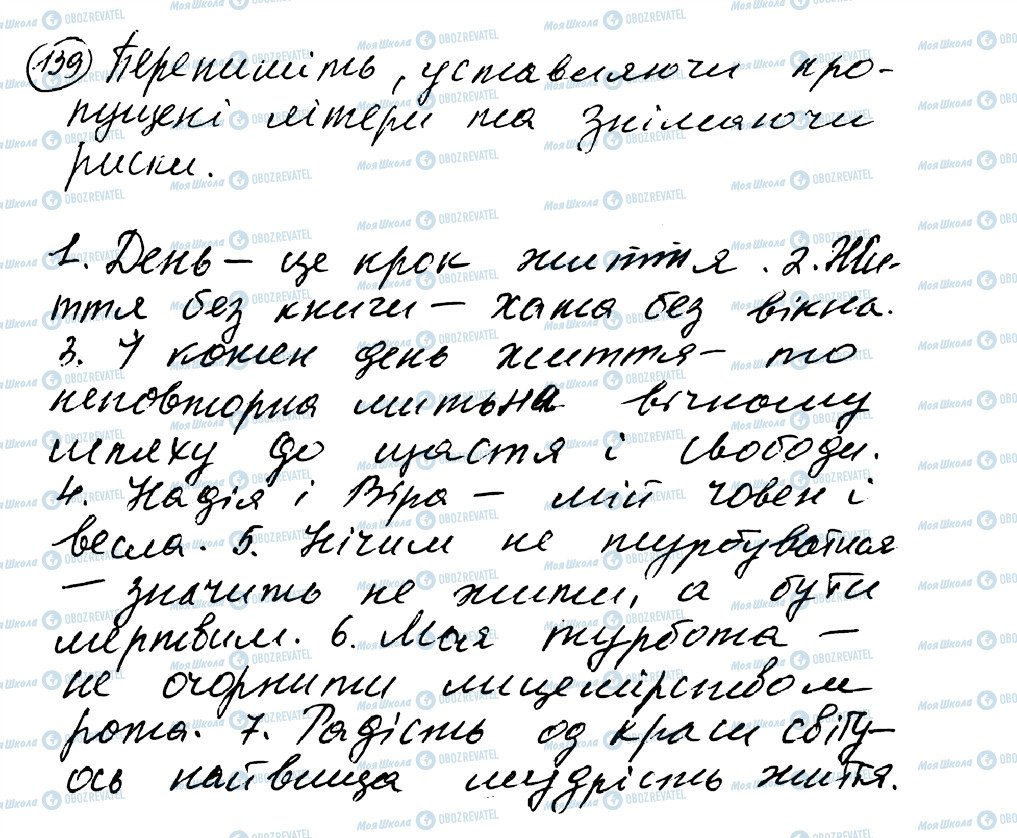 139 Перепишіть, уставляючи про-
пущені літери та знімаючи
риски.
1. День – це крок життя. 2. Жи-
ття без книги – хата без вікна.
3. Й кожен день життя – то
неповторна мить на вічному
шляху до щастя і свободи.
4. Надія і Віра – мій човен і
весла. 5. Нічим не турбуватися
– значить не жити, а бути
мертвим. 6. Моя турбота –
не очорнити лицемірством
рота. 7. Радість од краси світу –
ось найвища мудрість життя.